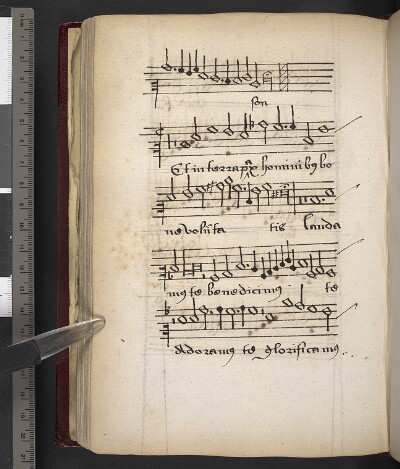 son
Et in terra pax hominibus bo
ne volūta tis lauda
mus te benedicimus te
Adoramus te glorificamus..